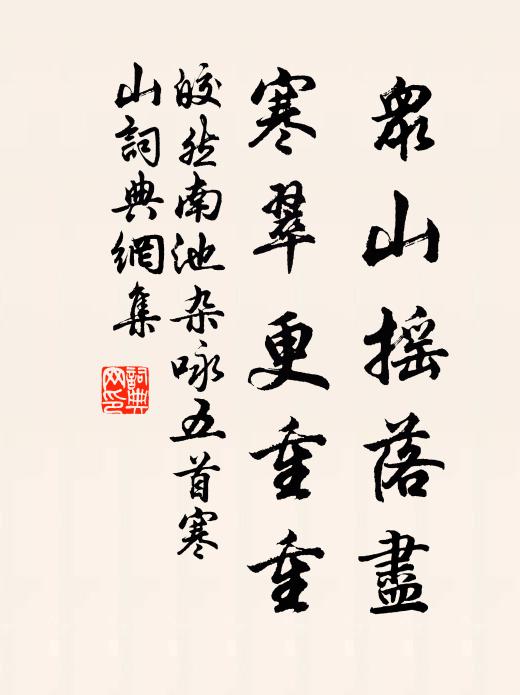 衆山摇落盡
寒翠更重重
皎然南池杂咏五首寒
山詞典網集
詞典网印